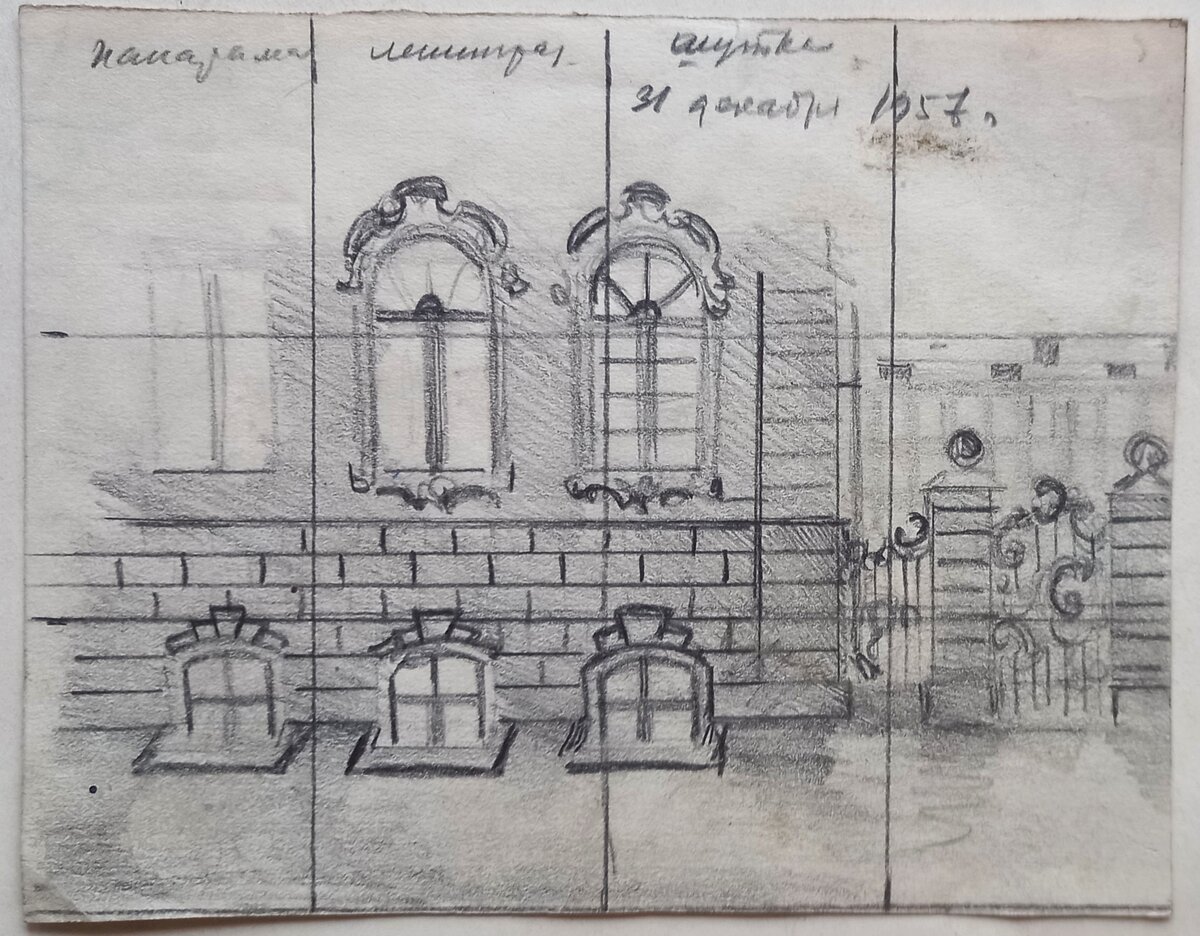 панарама ленинград. шутка
31 декабря 1957 г.